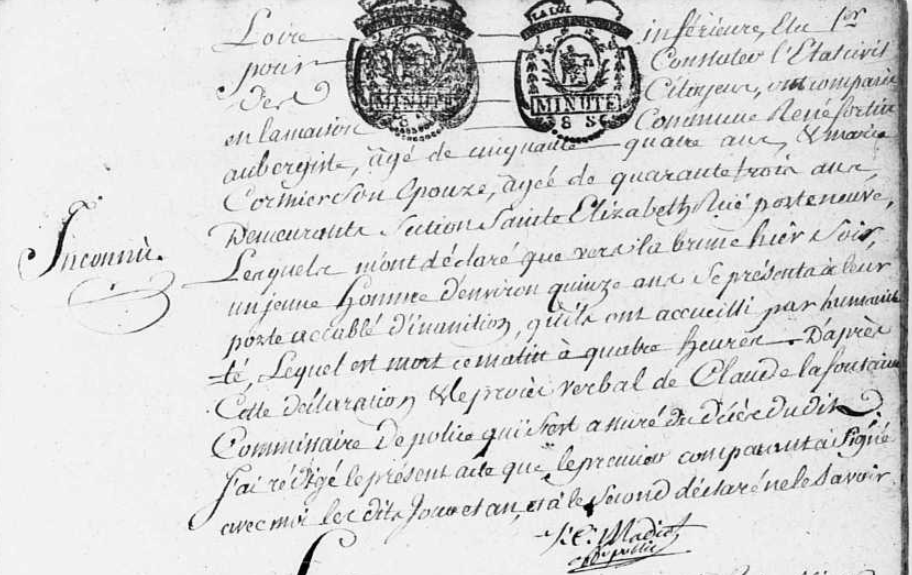 LA LOI
Loire inférieure, Elu 1er
pour Constater l'Etat civil
des MINUTE MINUTE Citoyens, ont comparu
en la maison Commune René fortin
aubergiste, agé de cinquante quatre ans, & marie
Cormier Son Epouze, agée de quarante trois ans,
Demeurants Section Sainte Elizabeth Rue porte neuve,
Inconnu.
Lesquels m'ont déclaré que vers la brune hier Soir,
un jeune Homme d'environ quinze ans Se présenta à leur
porte accablé d'inanition, qu'ils ont accueilli par humani
té, Lequel est mort ce matin à quatre Heures. D'après
Cette déclaration & le procès verbal de Claude la fontaine
Commissaire De police qui s'est assuré du décès du dit
J'ai rédigé le présent acte que le premier comparant à Signé
avec moi les dits Jour et an, et à le Second déclaré ne le Savoir.